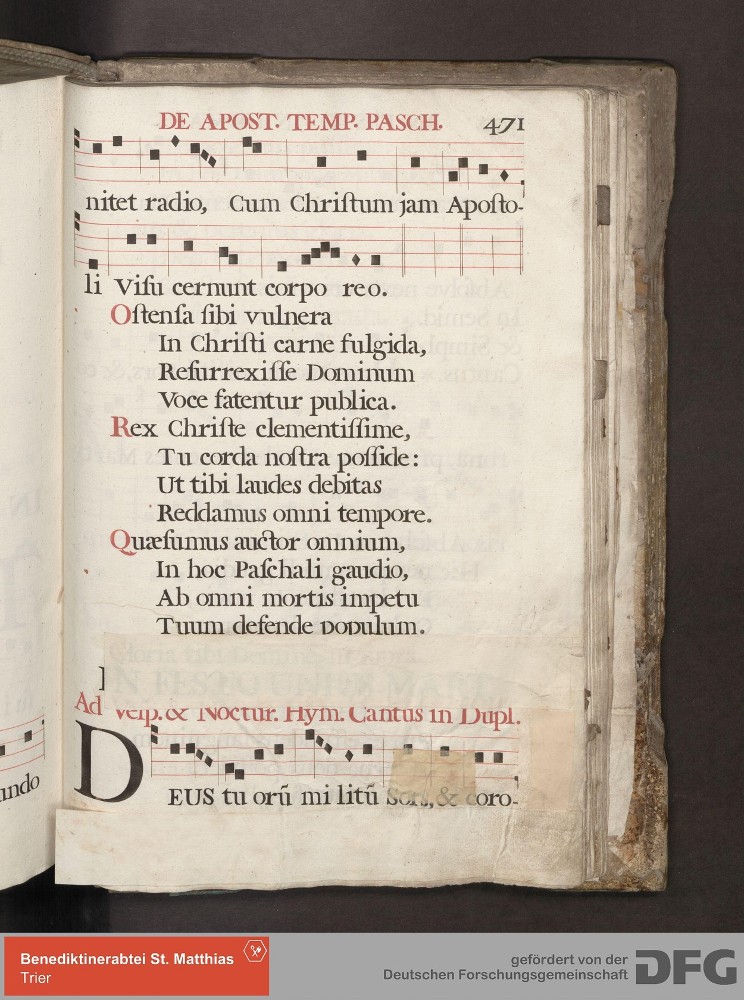 DE APOST. TEMP. PASCH. 471
nitet radio, Cum Chriſtum jam Apoſto-
li Viſu cernunt corpo reo.
Oſtenſa ſibi vulnera
In Chriſti carne fulgida,
Reſurrexiſſe Dominum
Voce fatentur publica.
Rex Chriſte clementiſſime,
Tu corda noſtra poſſide:
Ut tibi laudes debitas
Reddamus omni tempore.
Quæſumus auctor omnium,
In hoc Paſchali gaudio,
Ab omni mortis impetu
Tuum defende populum.
Ad Veſp. & Noctur. Hym. Cantus in Dupl.
DEUS tu orũ mi litũ Sors, & coro-
ando
Benediktinerabtei St. Matthias
Trier
gefördert von der
Deutschen Forschungsgemeinschaft
DFG